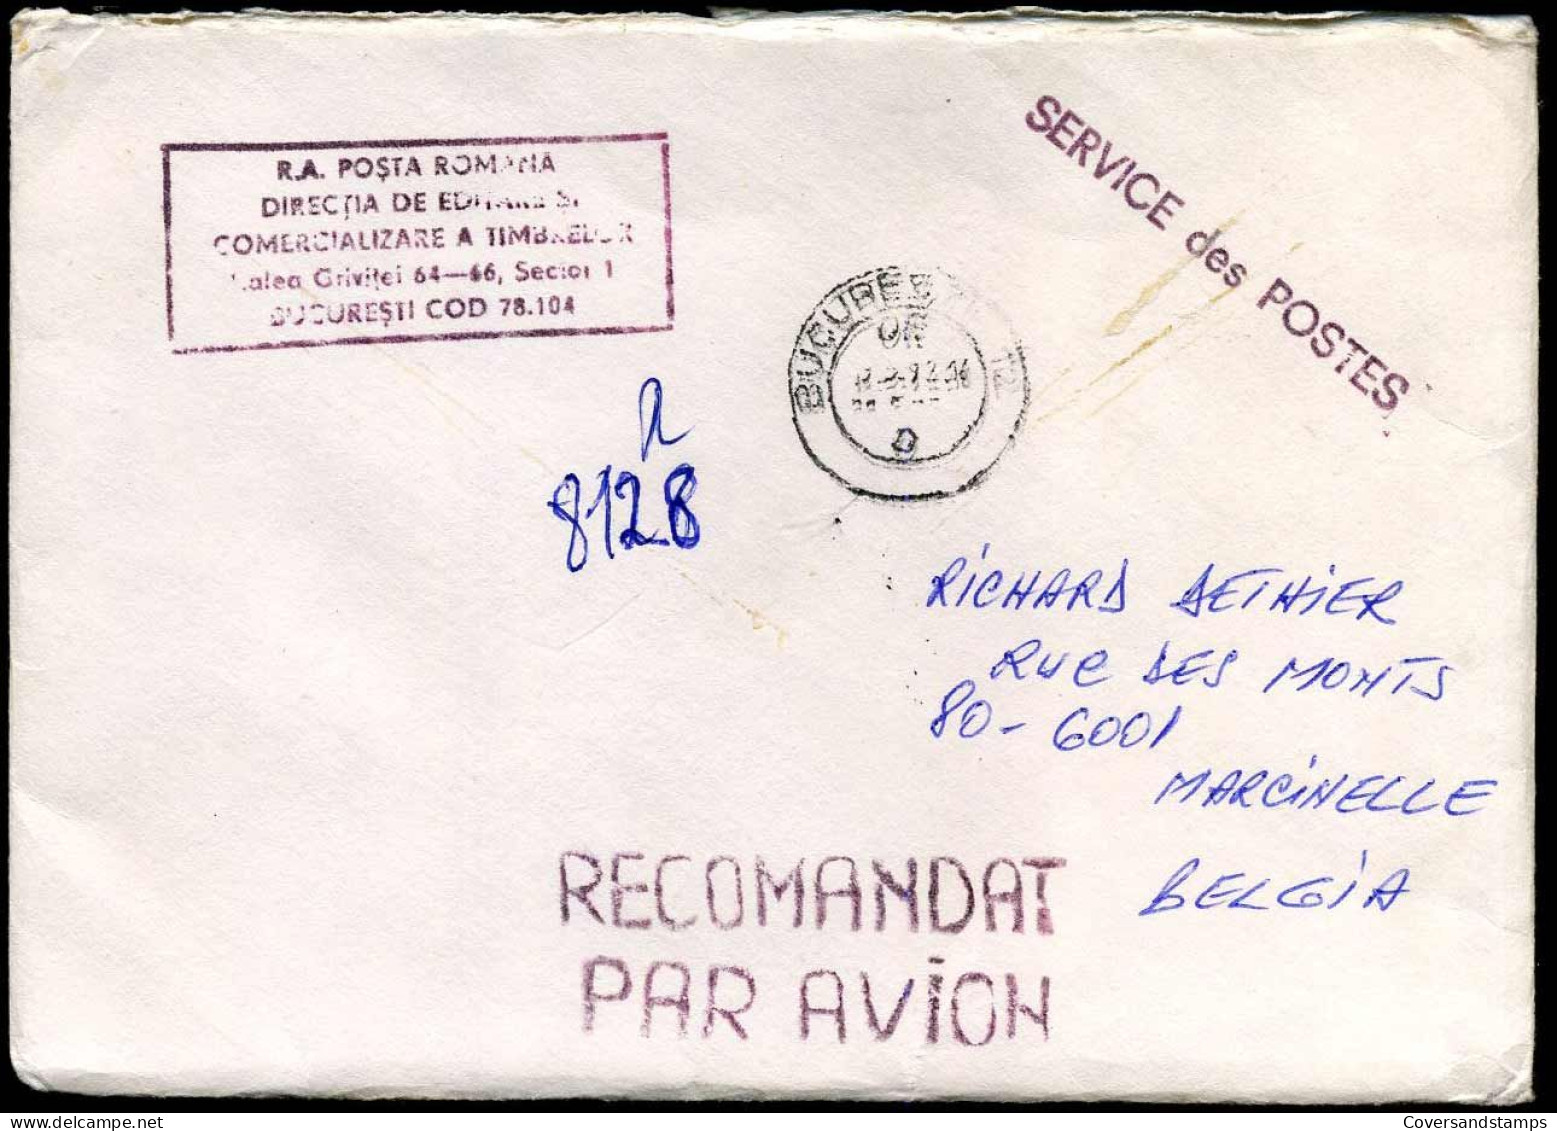 R.A. POȘTA ROMANĂ
DIRECȚIA DE EDITARE ȘI
COMERCIALIZARE A TIMBRELOR
Calea Griviței 64—66, Sector 1
BUCUREȘTI COD 78.104
SERVICE des POSTES
BUCUREȘTI 12
OR
D
R
8128
RICHARD DETHIER
RUE DES MONTS
80-6001
MARCINELLE
BELGIA
RECOMANDAT
PAR AVION
Coversandstamps